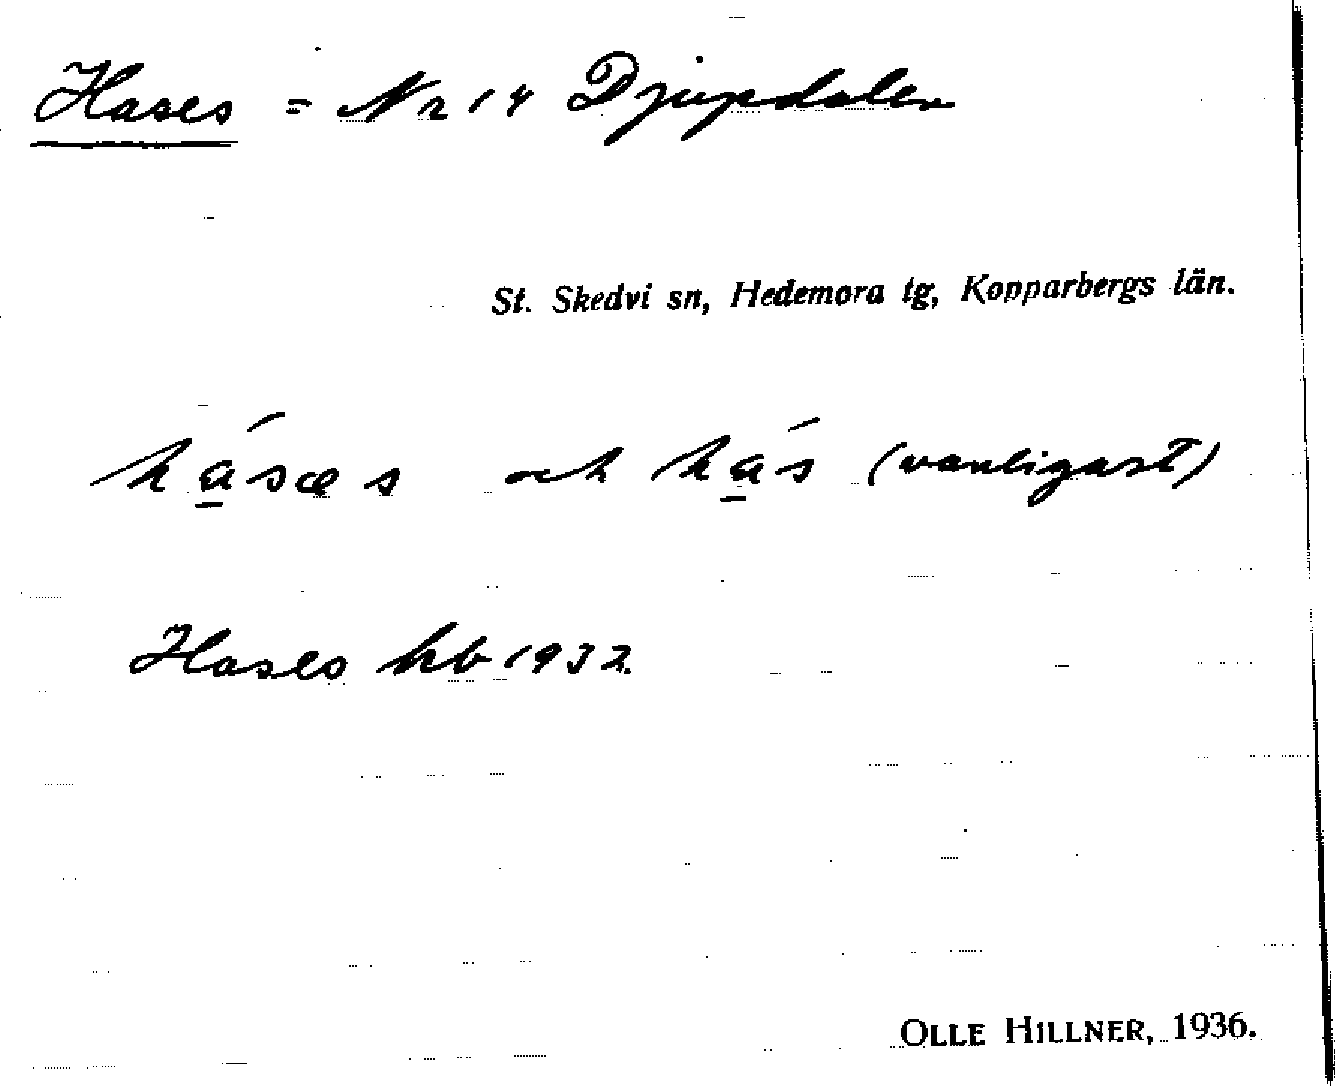 Hases = Nr 14 Djupdalen
St. Skedvi sn, Hedemora tg, Kopparbergs län.
há̱sæs och há̱s (vanligast)
Hases kb 1932.
OLLE HILLNER, 1936.